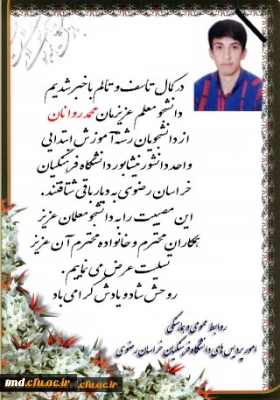 در کمال تاسف و تالم با خبر شدیم
دانشجو معلم عزیزمان محمد روانان
از دانشجویان رشته آموزش ابتدایی
واحد دانشور نیشابور دانشگاه فرهنگیان
خراسان رضوی به دیار باقی شتافتند.
این مصیبت را به دانشجو معلمان عزیز
همکاران محترم و خانواده محترم آن عزیز
تسلیت عرض می نماییم.
روحش شاد و یادش گرامی باد
روابط عمومی و هماهنگی
امور پردیس های دانشگاه فرهنگیان خراسان رضوی
tmd.cfu.ac.ir